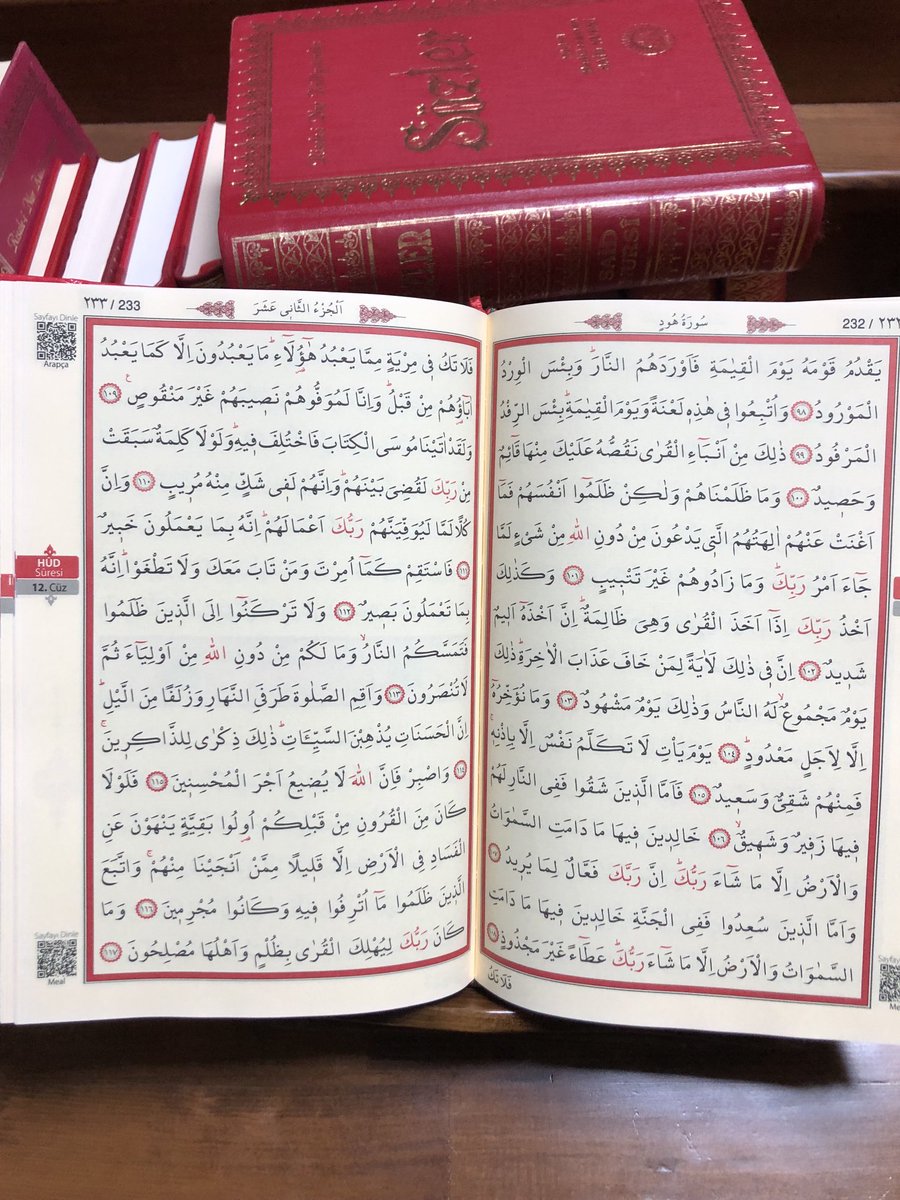 Sözler
SÖZLER
SAİD NURSÎ
232 / ٢٣٢
سُورَةُ هُودٍ
يَقْدُمُ قَوْمَهُ يَوْمَ الْقِيٰمَةِ فَاَوْرَدَهُمُ النَّارَۜ وَبِئْسَ الْوِرْدُ
الْمَوْرُودُ ٩٨ وَاُتْبِعُوا ف۪ي هٰذِه۪ لَعْنَةً وَيَوْمَ الْقِيٰمَةِۜ بِئْسَ الرِّفْدُ
الْمَرْفُودُ ٩٩ ذٰلِكَ مِنْ اَنْبَٓاءِ الْقُرٰى نَقُصُّهُ عَلَيْكَ مِنْهَا قَٓائِمٌ
وَحَص۪يدٌ ١٠٠ وَمَا ظَلَمْنَاهُمْ وَلٰكِنْ ظَلَمُٓوا اَنْفُسَهُمْ فَمَٓا
اَغْنَتْ عَنْهُمْ اٰلِهَتُهُمُ الَّت۪ي يَدْعُونَ مِنْ دُونِ اللّٰهِ مِنْ شَيْءٍ لَمَّا
جَٓاءَ اَمْرُ رَبِّكَۜ وَمَا زَادُوهُمْ غَيْرَ تَتْب۪يبٍ ١٠١ وَكَذٰلِكَ
اَخْذُ رَبِّكَ اِذَٓا اَخَذَ الْقُرٰى وَهِيَ ظَالِمَةٌۜ اِنَّ اَخْذَهُٓ اَل۪يمٌ
شَد۪يدٌ ١٠٢ اِنَّ ف۪ي ذٰلِكَ لَاٰيَةً لِمَنْ خَافَ عَذَابَ الْاٰخِرَةِۜ ذٰلِكَ
يَوْمٌ مَجْمُوعٌۙ لَهُ النَّاسُ وَذٰلِكَ يَوْمٌ مَشْهُودٌ ١٠٣ وَمَا نُؤَخِّرُهُٓ
اِلَّا لِاَجَلٍ مَعْدُودٍۜ ١٠٤ يَوْمَ يَأْتِ لَا تَكَلَّمُ نَفْسٌ اِلَّا بِاِذْنِه۪ۚ
فَمِنْهُمْ شَقِيٌّ وَسَع۪يدٌ ١٠٥ فَاَمَّا الَّذ۪ينَ شَقُوا فَفِي النَّارِ لَهُمْ
ف۪يهَا زَف۪يرٌ وَشَه۪يقٌۙ ١٠٦ خَالِد۪ينَ ف۪يهَا مَا دَامَتِ السَّمٰوَاتُ
وَالْاَرْضُ اِلَّا مَا شَٓاءَ رَبُّكَۜ اِنَّ رَبَّكَ فَعَّالٌ لِمَا يُر۪يدُ ١٠٧
وَاَمَّا الَّذ۪ينَ سُعِدُوا فَفِي الْجَنَّةِ خَالِد۪ينَ ف۪يهَا مَا دَامَتِ
السَّمٰوَاتُ وَالْاَرْضُ اِلَّا مَا شَٓاءَ رَبُّكَۜ عَطَٓاءً غَيْرَ مَجْذُوذٍ ١٠٨
فَلَا تَكُ
٢٣٣ / 233
اَلْجُزْءُ الثَّانِي عَشَرَ
Sayfayı Dinle
Arapça
HÛD
Sûresi
12. Cüz
Sayfayı Dinle
Meal
فَلَا تَكُ ف۪ي مِرْيَةٍ مِمَّا يَعْبُدُ هٰٓؤُ۬لَٓاءِۜ مَا يَعْبُدُونَ اِلَّا كَمَا يَعْبُدُ
اٰبَٓاؤُ۬هُمْ مِنْ قَبْلُۜ وَاِنَّا لَمُوَفُّوهُمْ نَص۪يبَهُمْ غَيْرَ مَنْقُوصٍ۟ ١٠٩
وَلَقَدْ اٰتَيْنَا مُوسَى الْكِتَابَ فَاخْتُلِفَ ف۪يهِۜ وَلَوْلَا كَلِمَةٌ سَبَقَتْ
مِنْ رَبِّكَ لَقُضِيَ بَيْنَهُمْۜ وَاِنَّهُمْ لَف۪ي شَكٍّ مِنْهُ مُر۪يبٍ ١١٠ وَاِنَّ
كُلًّا لَمَّا لَيُوَفِّيَنَّهُمْ رَبُّكَ اَعْمَالَهُمْۜ اِنَّهُ بِمَا يَعْمَلُونَ خَب۪يرٌ
١١١ فَاسْتَقِمْ كَمَٓا اُمِرْتَ وَمَنْ تَابَ مَعَكَ وَلَا تَطْغَوْاۜ اِنَّهُ
بِمَا تَعْمَلُونَ بَص۪يرٌ ١١٢ وَلَا تَرْكَنُٓوا اِلَى الَّذ۪ينَ ظَلَمُوا
فَتَمَسَّكُمُ النَّارُۙ وَمَا لَكُمْ مِنْ دُونِ اللّٰهِ مِنْ اَوْلِيَٓاءَ ثُمَّ
لَا تُنْصَرُونَ ١١٣ وَاَقِمِ الصَّلٰوةَ طَرَفَيِ النَّهَارِ وَزُلَفًا مِنَ الَّيْلِۜ
اِنَّ الْحَسَنَاتِ يُذْهِبْنَ السَّيِّـَٔاتِۜ ذٰلِكَ ذِكْرٰى لِلذَّاكِر۪ينَۚ
١١٤ وَاصْبِرْ فَاِنَّ اللّٰهَ لَا يُض۪يعُ اَجْرَ الْمُحْسِن۪ينَ ١١٥ فَلَوْلَا
كَانَ مِنَ الْقُرُونِ مِنْ قَبْلِكُمْ اُو۬لُوا بَقِيَّةٍ يَنْهَوْنَ عَنِ
الْفَسَادِ فِي الْاَرْضِ اِلَّا قَل۪يلًا مِمَّنْ اَنْجَيْنَا مِنْهُمْۚ وَاتَّبَعَ
الَّذ۪ينَ ظَلَمُوا مَٓا اُتْرِفُوا ف۪يهِ وَكَانُوا مُجْرِم۪ينَ ١١٦ وَمَا
كَانَ رَبُّكَ لِيُهْلِكَ الْقُرٰى بِظُلْمٍ وَاَهْلُهَا مُصْلِحُونَ ١١٧